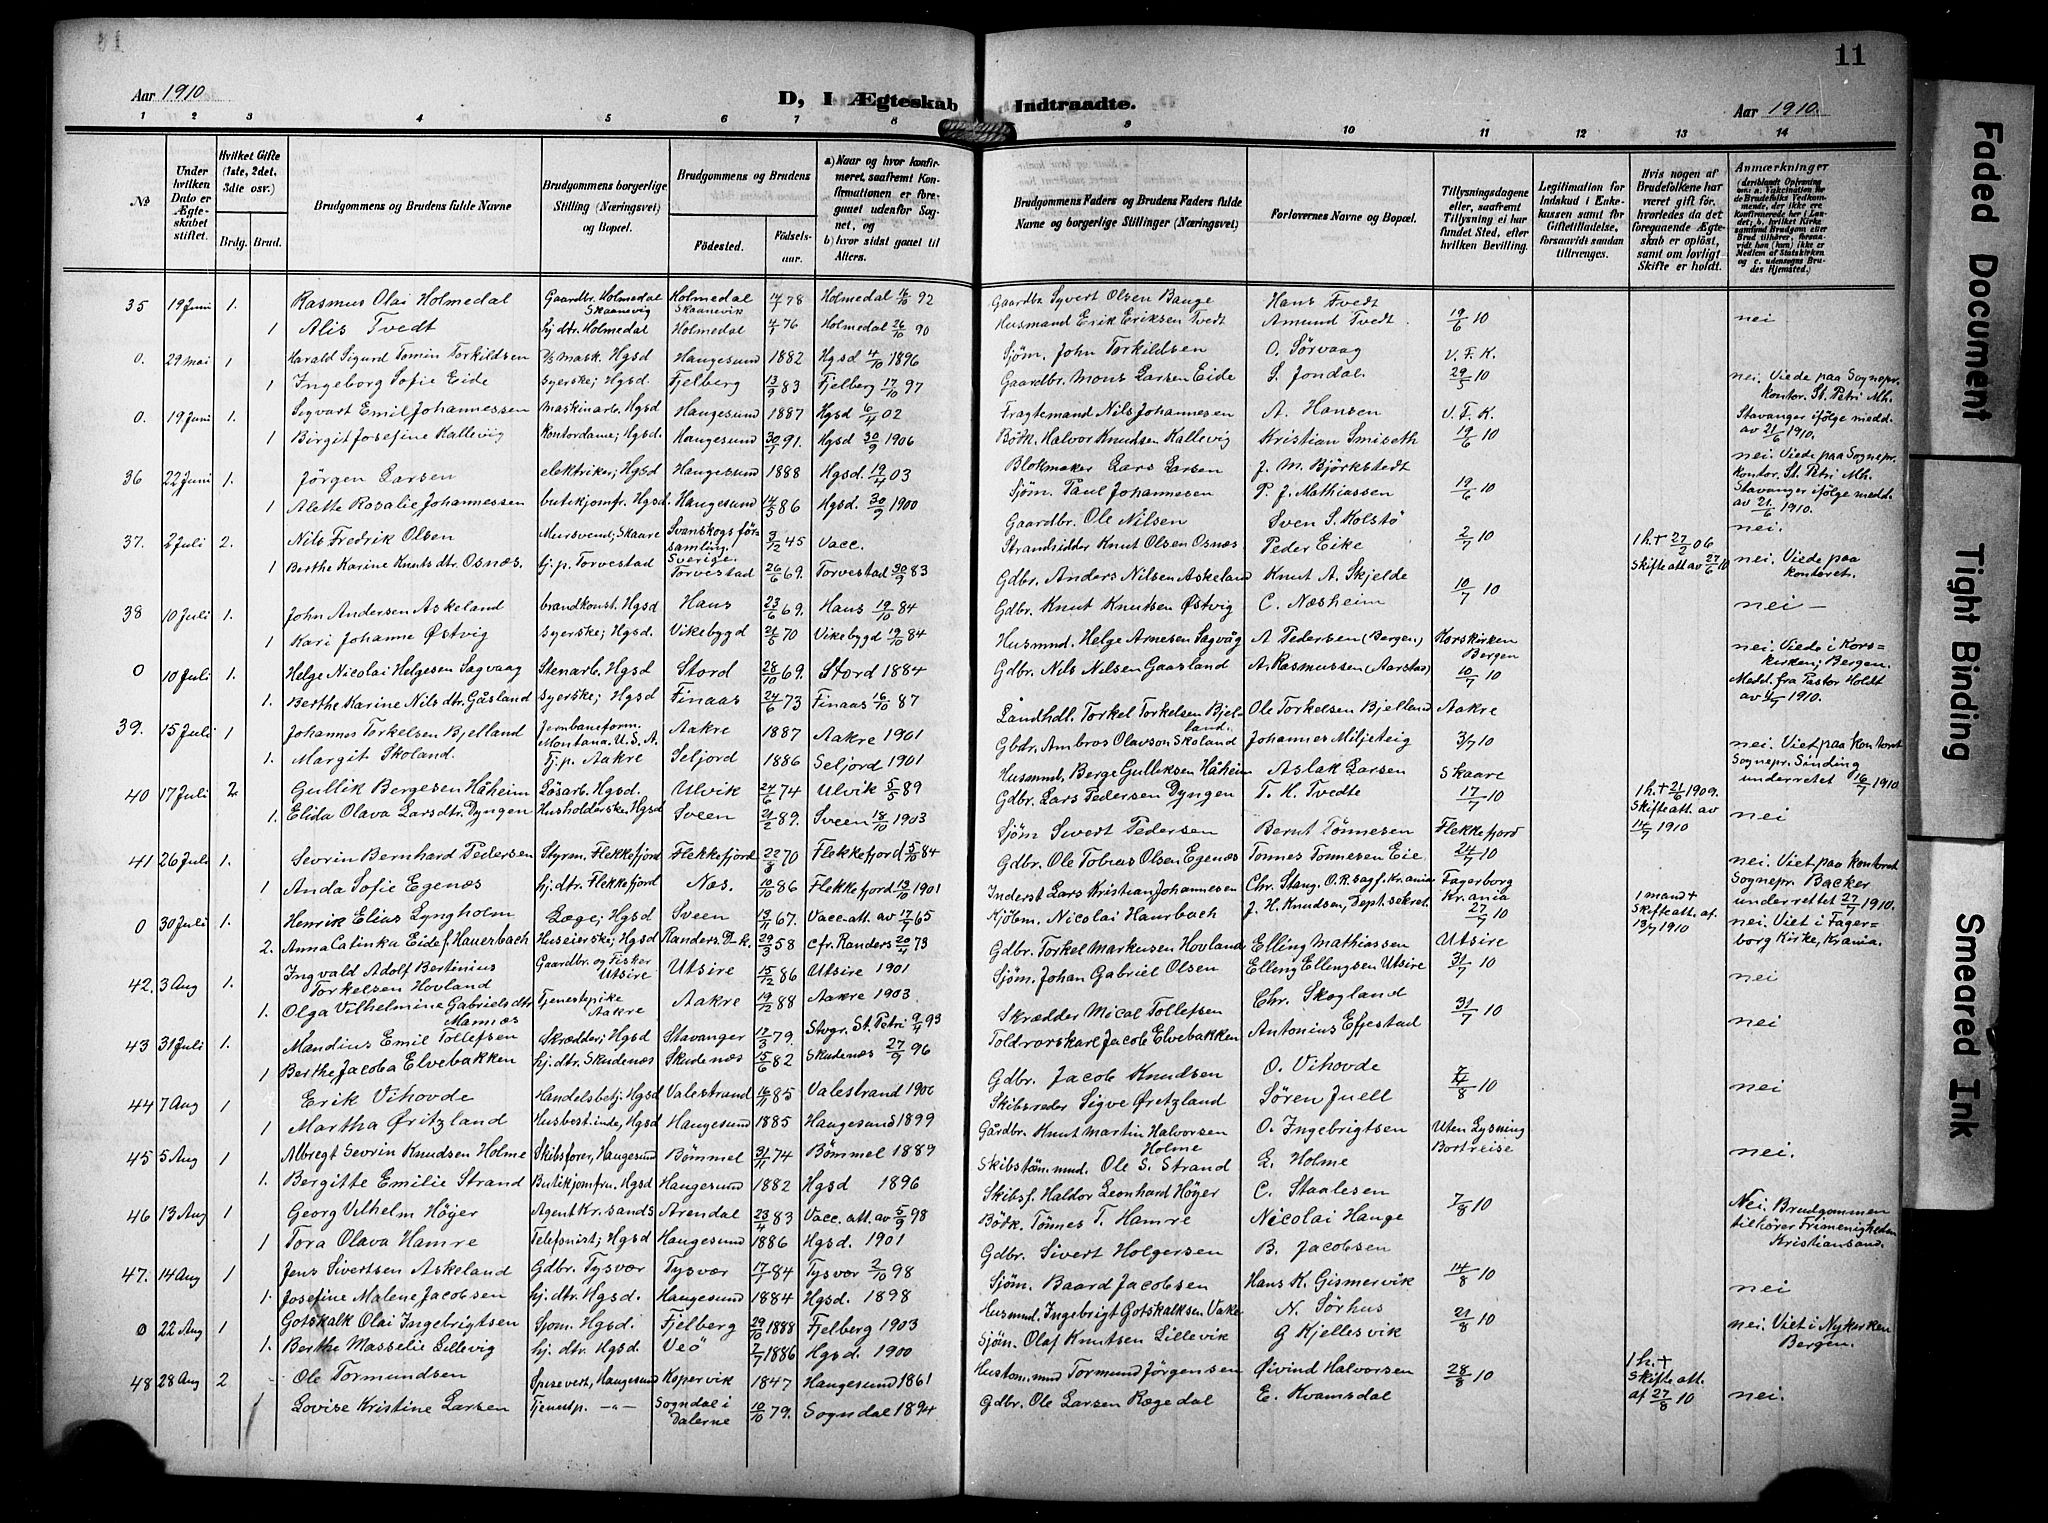 11
Aar 1910
D, I Ægteskab Indtraadte.
Aar 1910.
1 2 3 4 5 6 7 8 9 10 11 12 13 14
No
Under hvilken Dato er Ægteskabet stiftet.
Hvilket Gifte (1ste, 2det, 3die osv.)
Brdg. Brud.
Brudgommens og Brudens fulde Navne
Brudgommens borgerlige Stilling (Næringsvei) og Bopæl.
Brudgommens og Brudens
Födested.
Födsels-aar.
a) Naar og hvor konfirmeret, saafremt Konfirmationen er foregaaet udenfor Sognet, og
b) hvor sidst gaaet til Alters.
Brudgommens Faders og Brudens Faders fulde Navne og borgerlige Stillinger (Næringsvei)
Forlovernes Navne og Bopæl.
Tillysningsdagene eller, saafremt Tillysning ei har fundet Sted, efter hvilken Bevilling.
Legitimation for Indskud i Enkekassen samt for Giftetilladelse, forsaavidt saadan tiltrænges.
Hvis nogen af Brudefolkene har været gift för, hvorledes da det foregaaende Ægteskab er oplöst, samt om lovligt Skifte er holdt.
Anmærkninger
35 19 Juni 1. Rasmus Olai Holmedal Gaardbr. Holmedal Skaanevig Holmedal Skaanevik 14/7 78 Holmedal 16/10 92 Gaardbr. Syvert Olsen Bauge Hans Tvedt
1 Alis Tvedt hj dtr. Holmedal Holmedal 4/7 76 Holmedal 26/10 90 Husmand Erik Eriksen Tvedt Amund Tvedt 19/6 10 nei
0. 29 mai 1 Harald Sigurd Tomin Torkildsen D/S mask. Hgsd Haugesund 1882 Hgsd 4/10 1896 Sjöm. John Torkildsen O. Sörvaag V. F. K.
1 Ingeborg Sofie Eide syerske; Hgsd. Fjelberg 13/9 83 Fjelberg 17/10 97 Gaardbr. Mons Larsen Eide S. Jondal 29/5 10 nei. Viede paa Sognepr. kontor. St. Petri Mh. Stavanger ifölge medd. av 21/6 1910.
0. 19 Juni 1. Sigvart Emil Johannessen Maskinarb. Hgsd Haugesund 1887 Hgsd 6/4 02 Fragtemand Nils Johannesen A. Hansen V. F. K.
1 Birgit Josefine Kallevig Kontordame; Hgsd. Haugesund 30/7 91. Hgsd 30/9 1906 Bödk. Halvor Knudsen Kallevig Kristian Smiseth 19/6 10 nei. Viede paa Sognepr. kontor. St. Petri Mh. Stavanger ifölge medd. av 21/6 1910.
36 22 Juni 1. Jörgen Larsen elektriker; Hgsd Haugesund 1888 Hgsd. 19/4 03 Blokmaker Lars Larsen J. M. Björkstedt
1 Alette Rosalie Johannessen butikjomfr. Hgsd. Haugesund 14/5 86 Hgsd. 30/9 1900 Sjöm. Paul Johannesen P. J. Mathiassen 19/6 10 nei.
37. 2 Juli 2. Nils Fredrik Olsen Mursvend; Skaare Svanskogs församling. Sverige 9/2 45 Vacc. Gaardbr. Ole Nilsen Sven S. Holstö 2/7 10 1 h. + 27/2 06
1 Berthe Karine Knutsdtr. Osnæs. hj. p. Torvestad Torvestad 26/6 69. Torvestad 30/9 83 Strandsidder Knut Olsen Osnæs Peder Eike Skifteatt av 27/6 10 nei. Viede paa kontoret.
38 10 Juli 1. John Andersen Askeland brandkonst. Hgsd Haus 23/6 69. Haus 19/10 84 Gdbr. Anders Nilsen Askeland Knut A. Skjelde 10/7 10
1 Kari Johanne Østvig syerske; Hgsd. Vikebygd 21/6 70 Vikebygd 19/10 84 Gdbr. Knut Knutsen Østvig C. Næsheim nei –
0 10 Juli 1. Helge Nicolai Helgesen Sagvaag Stenarb. Hgsd Stord 28/10 69. Stord 1884 Husmnd. Helge Arnesen Sagvåg A Pedersen (Bergen) Korskirken Bergen
1. Berthe Karine Nilsdtr. Gåsland syerske; Hgsd Finaas 24/6 73 Finaas 16/10 87 Gdbr. Nils Nilsen Gaasland A. Rasmussen (Aarstad) 10/7 10 nei. Viede i Korskirken; Bergen. Medd. fra Pastor Holdt av 11/7 1910.
39. 15 Juli 1 Johannes Torkelsen Bjelland Jernbaneform. Montana. U. S. A. Aakre 1887 Aakre 1901 Landhdl. Torkel Torkelsen Bjelland. Ole Torkelsen Bjelland Aakre
1. Margit Skoland. Tj. p. Aakre Seljord 1886 Seljord 1901 Gbdr. Ambros Olavson Skoland Johannes Miljeteig 3/7 10 nei. Viet paa kontoret Sognepr. Sinding underrettet 16/7 1910
40 17 Juli 2 Gullik Bergesen Håheim Lösarb. Hgsd. Ulvik 24/6 74 Ulvik 5/5 89 Husmnd. Berge Gulliksen Håheim Aslak Larsen Skaare 1 h. + 21/6 1909.
1. Elida Olava Larsdtr. Dyngen Husholderske; Hgsd Sveen 21/2 89. Sveen 18/10 1903 Gdbr. Lars Pedersen Dyngen T. H. Tvedte 17/7 10 Skifteatt. av 14/7 1910 nei
41 26 Juli 1. Sevrin Bernhard Pedersen Styrm. Flekkefjord Flekkefjord 22/8 70 Flekkefjord 5/10 84 Sjöm Sivert Pedersen Bernt Tönnesen Flekkefjord
1 Anda Sofie Egenæs hj. dtr. Flekkefjord Nas. 10/10 86 Flekkefjord 13/10 1901 Gdbr. Ole Tobias Olsen Egenæs Tönnes Tönnesen Eie 24/7 10 nei. Viet paa kontoret Sognepr. Backer underrettet 27/7 1910.
0 30 Juli 1. Henrik Elias Lyngholm Læge; Hgsd Sveen 13/11 67. Vacc. att. av 17/7 65 Inderst Lars Kristian Johannesen Chr. Stang. O.R.sagf. Kr.ania Fagerborg Kr.ania 1 mand + Skifteatt. af. 13/7 1910
2. Anna Catinka Eide f. Hauerbach Huseierske; Hgsd Randers. D-k. 29/3 58 cfr. Randers 20/4 73 Kjöbm. Nicolai Haurbach J. H. Knudsen, Dept. sekret. 27/7 10 nei. Viet i Fagerborg Kirke, Krania.
42. 3 Aug 1. Ingvald Adolf Bertinius Torkelsen Hovland Gaardbr. og Fisker Utsire Utsire 15/12 86 Utsire 1901 Gdbr. Torkel Markusen Hovland Elling Mathiassen Utsire
1. Olga Vilhelmine Gabrielsdtr Mannæs Tjenestepike Aakre Aakre 19/12 88 Aakre 1903. Sjöm. Johan Gabriel Olsen Elling Ellingsen Utsire 31/7 10 nei
43 31 Juli 1. Mandius Emil Tollefsen Skrædder; Hgsd Stavanger 17/3 79. Stvgr. St. Petri 9/4 93 Skrædder Mical Tollefsen Chr. Skogland 31/7 10
1 Berthe Jacoba Elvebakken hj. dtr. Skudenæs Skudenæs 15/6 82 Skudenæs 27/9 96 Toldrorskarl Jacob Elvebakken Antonius Effestad nei
44 7 Aug 1 Erik Vihovde Handelsbetj. Hgsd Valestrand 16/11 85 Valestrand 1900 Gdbr. Jacob Knudsen O. Vihovde 7/8 10
1 Martha Øritzland Husbest.inde, Hgsd Haugesund 1885 Haugesund 1899 Skibsreder Sigve Øritzland Sören Juell nei
45 5 Aug 1 Albregt Sevrin Knudsen Holme Skibsförer, Haugesund Bömmel 31/11 74 Bömmel 1889 Gårdbr. Knut Martin Halvorsen Holme O. Ingebrigtsen Uten Lysning Bortreise
1. Bergitte Emilie Strand Butikjomfru, Hgsd Haugesund 1882 Hgsd 1896 Skibstöm.mnd. Ole S. Strand E. Holme nei.
46 13 Aug 1 Georg Vilhelm Höyer Agent Kr.sands Arendal 23/4 83 Vacc. att. av 5/9 98 Skibsf. Haldor Leonhard Höyer C. Staalesen 7/8 10
1 Tora Olava Hamre Telefonist; Hgsd Haugesund 1886 Hgsd. 1901 Bödk. Tönnes T. Hamre Nicolai Hauge Nei. Brudgommen tilhörer Frimenigheden Kristiansand.
47. 14 Aug 1 Jens Sivertsen Askeland Gdbr. Tysvær Tysvær 17/7 84 Tysvær 2/10 98 Gdbr. Sivert Holgersen B. Jacobsen 14/8 10
1. Josefine Malene Jacobsen hj. dtr. Hgsd. Haugesund 1884 Hgsd. 1898 Sjöm. Baard Jacobsen Hans K. Gismervik nei
0 22 Aug 1 Gotskalk Olai Ingebrigtsen Sjöm. Hgsd. Fjelberg 29/10 1888 Fjelberg 1903 Husmnd. Ingebrigt Gotskalksen Vake N. Sörhus 21/8 10
1. Berthe Masselie Lillevig hj. dtr. Hgsd. Veö 2/7 1886 Hgsd. 1900 Sjöm. Olaf Knutsen Lillevik G Kjellesvik nei. Viet i Nykerken Bergen.
48 28 Aug 2 Ole Tormundsen Spisevert, Haugesund Kopervik 1847 Haugesund 1861 Hustöm.mnd Tormund Jörgensen Øivind Halvorsen 28/8 10 1 h. + Skifteatt. af 27/8 10
1 Lovise Kristine Larsen Tjenstp. -"- Sogndal i Dalerne 10/10 79. Sogndal 1894 Gdbr. Ole Larsen Rægedal E. Kvamsdal nei.
Faded Document
Tight Binding
Smeared Ink